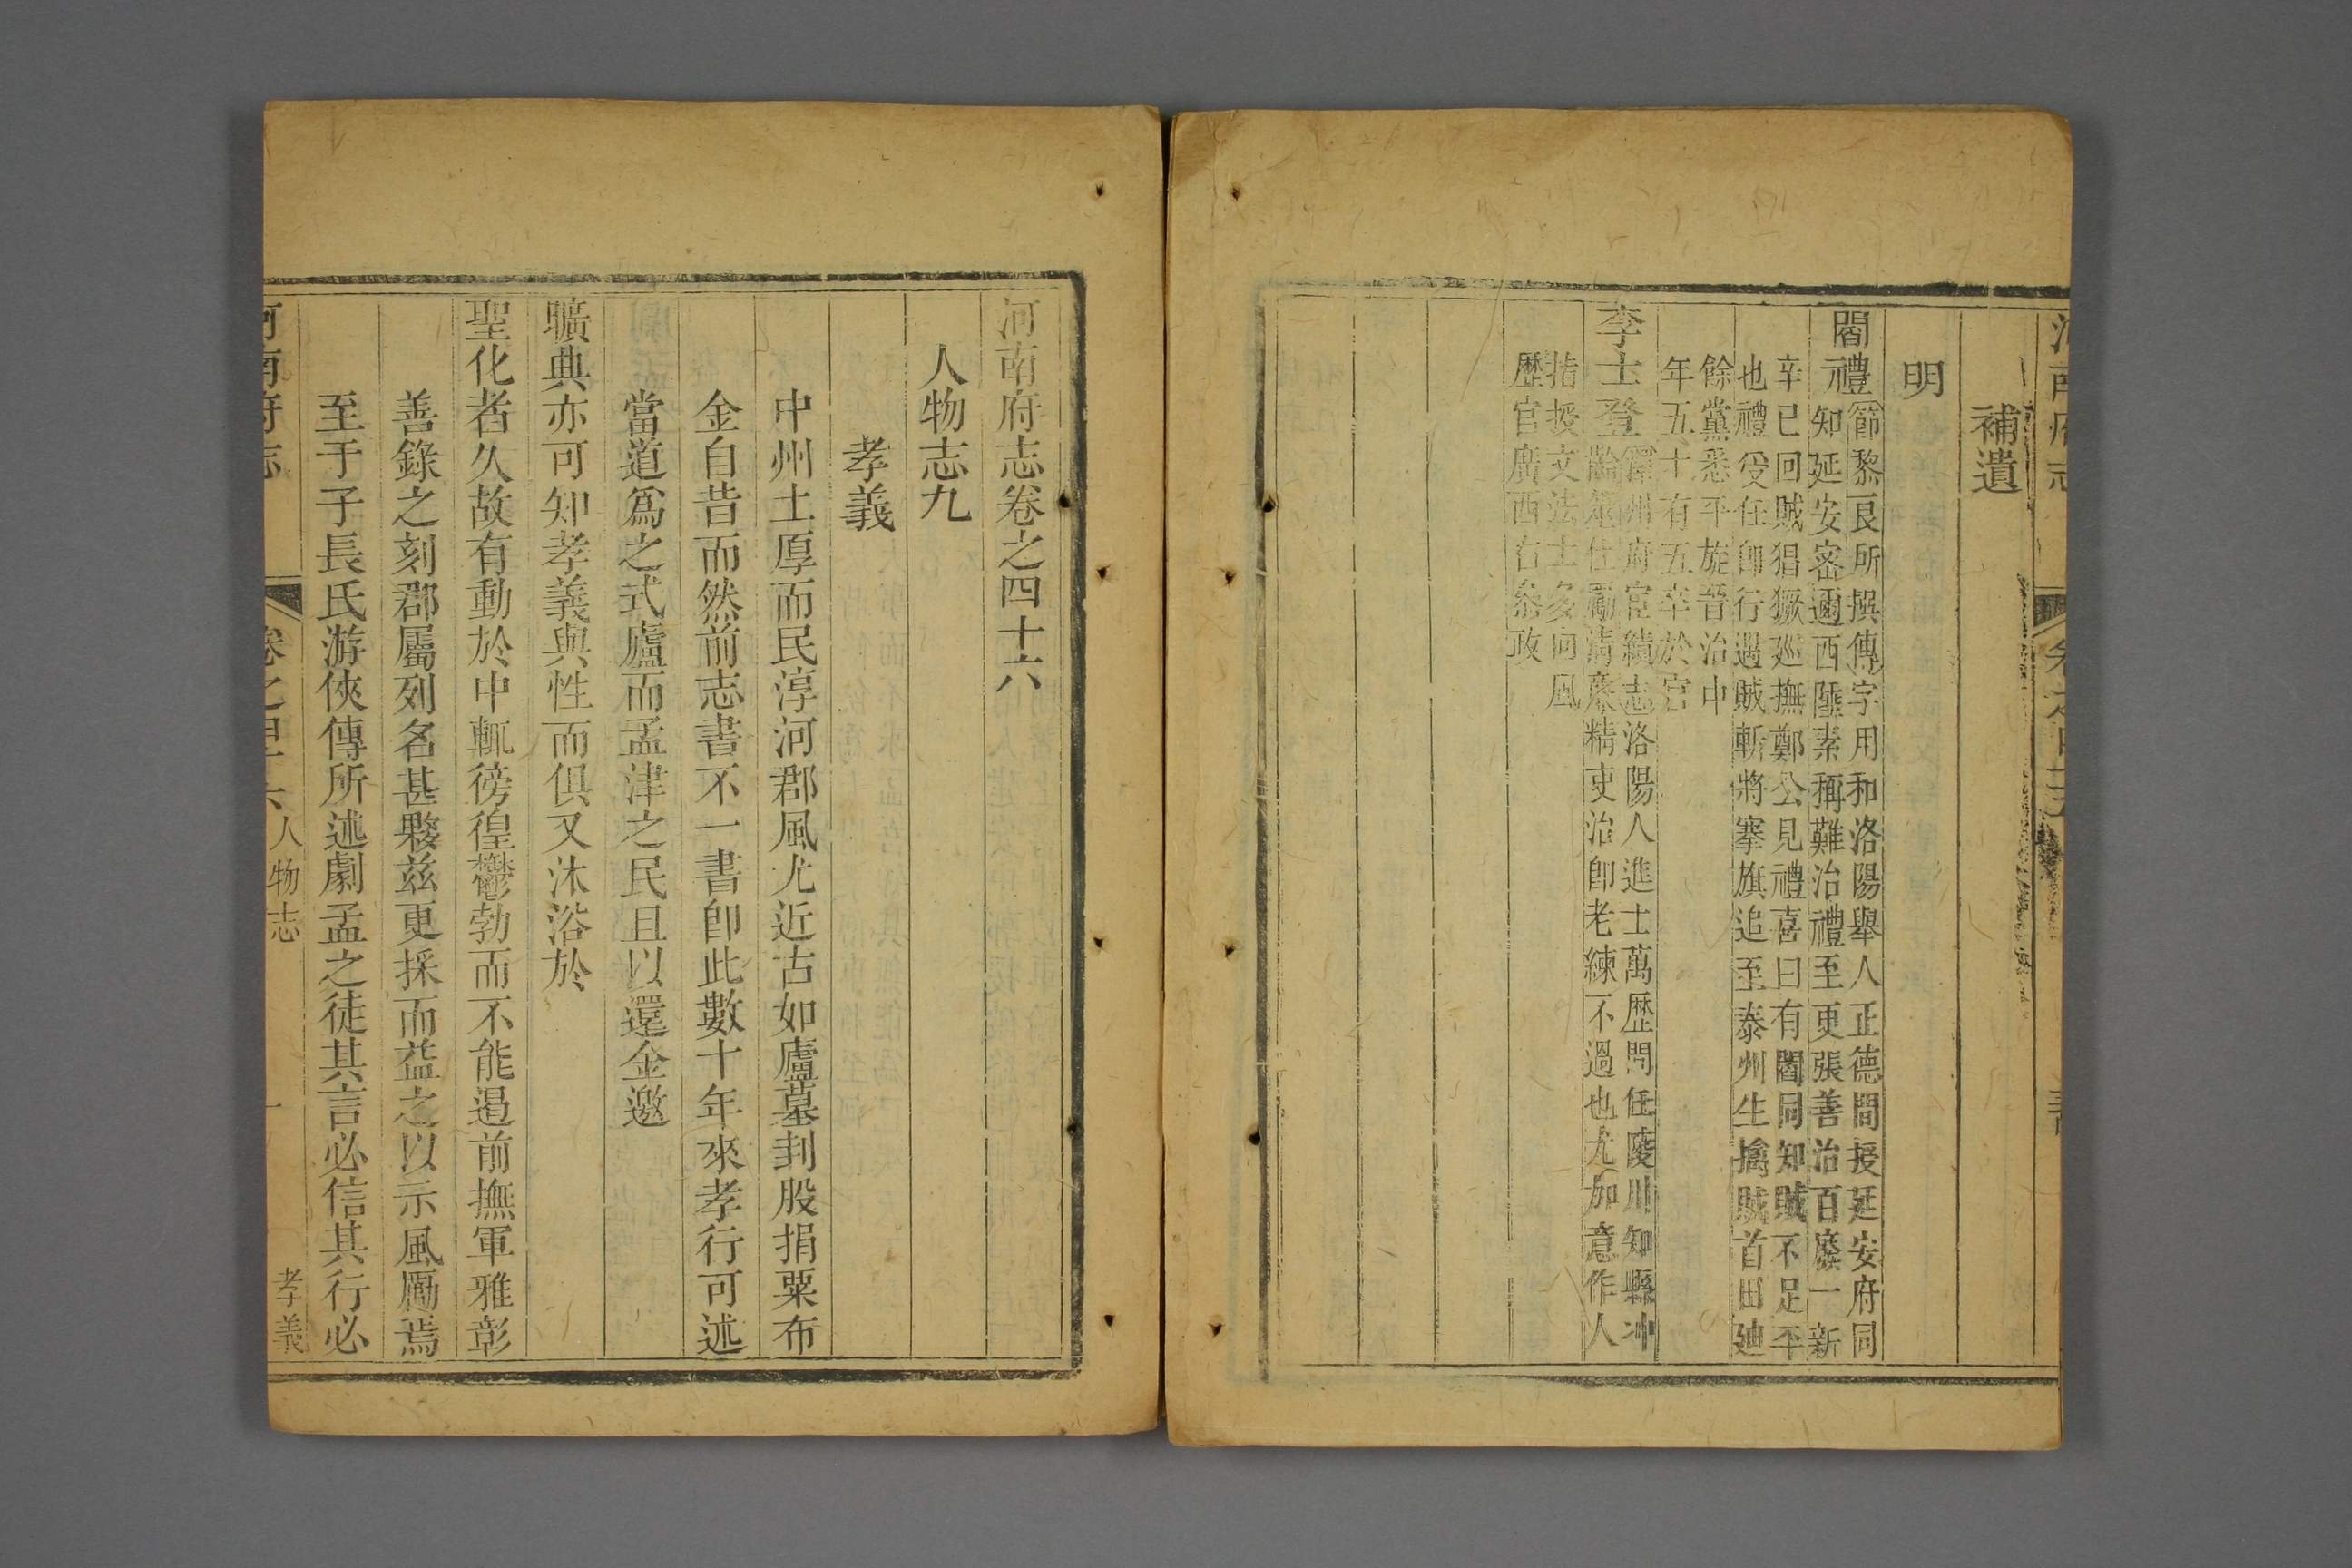 補遺
明
閻禮
節黎良所撰傳字用和洛陽舉人正德間授延安府同
知延安密邇西陲素稱難治禮至更張善治百廢一新
辛巳回賊猖獗廵撫鄭公見禮喜曰有閻同知賊不足平
也禮受任卽行遇賊斬將搴旗追至泰州生擒賊首田廸
餘黨悉平旋晉治中
年五十有五卒於官
李士登
澤州府宦績志洛陽人進士萬歷間任陵川知縣冲
齡筮仕勵清廉精吏治卽老練不過也尤加意作人
指授文法士多向風
歷官廣西右叅政
河南府志卷之四十六
人物志九
孝義
中州土厚而民淳河郡風尤近古如廬墓刲股捐粟布
金自昔而然前志書不一書卽此數十年來孝行可述
當道爲之式廬而孟津之民且以還金邀
曠典亦可知孝義與性而俱又沐浴於
聖化者久故有動於中輒徬徨鬱勃而不能遏前撫軍雅彰
善錄之刻郡屬列名甚夥兹更採而益之以示風勵焉
至于子長氏游俠傳所述劇孟之徒其言必信其行必
河南府志 卷之四十六 人物志 一 孝義